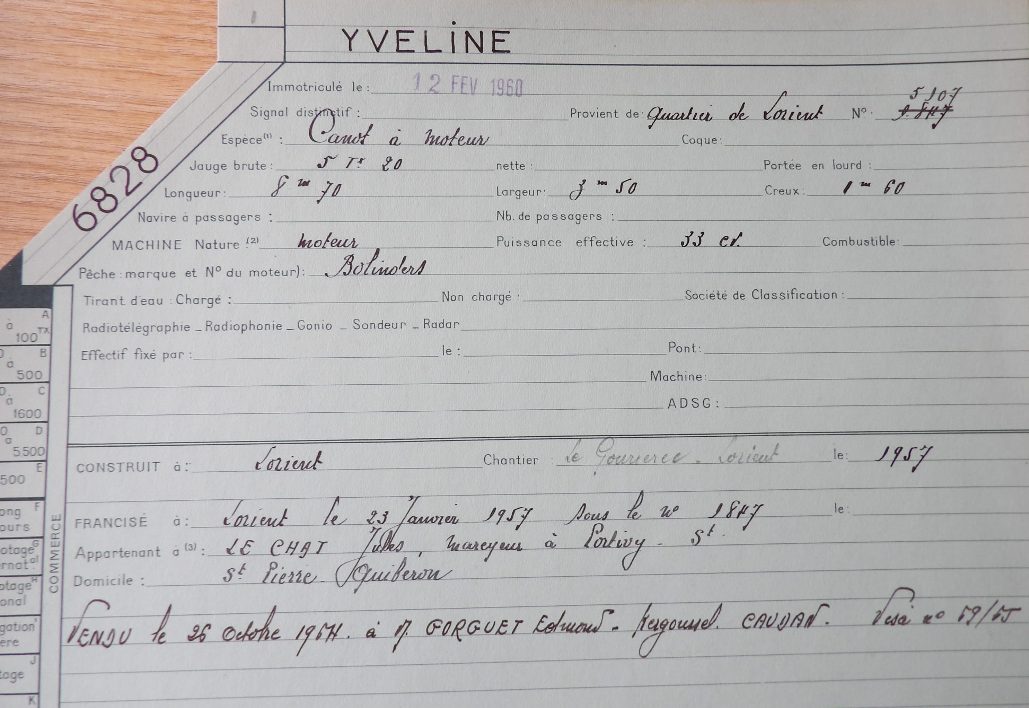 YVELINE
6828
Immatriculé le : 12 FEV 1960
5107
Signal distinctif : Provient de : Quartier de Lorient N° : 1.847
Espèce (1) : Canot à moteur Coque :
Jauge brute : 5 Tx 20 nette : Portée en lourd :
Longueur : 8 m 70 Largeur : 3 m 50 Creux : 1 m 60
Navire à passagers : Nb. de passagers :
MACHINE Nature (2) moteur Puissance effective : 33 cv. Combustible :
Pêche : marque et N° du moteur) : Bolinders
Tirant d'eau : Chargé : Non chargé : Société de Classification :
Radiotélégraphie _ Radiophonie _ Gonio _ Sondeur _ Radar
Effectif fixé par : le : Pont :
Machine :
ADSG :
CONSTRUIT à : Lorient Chantier : Le Gourierec - Lorient le : 1957
FRANCISÉ à : Lorient le 23 Janvier 1957 sous le n° 1847 le :
Appartenant à (3) : LE CHAT Jules, mareyeur à Portivy - St
Domicile : St Pierre Quiberon
VENDU le 26 Octobre 1964. à M. GORGUET Edmond - CAUDAN. Visa n° 59/65
A
à
100 TX
B
à
500
C
à
1600
D
à
5.500
E
500
F
ong
ours
G
otage
rnat al
H
otage
onal
gation
ère
J
tage
K
COMMERCE